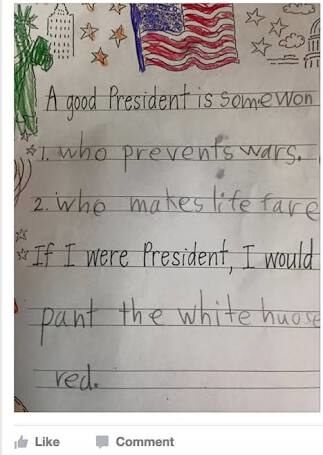 A good President is somewon
1. who prevents wars.
2. who makes life fare
If I were President, I would
pant the white huose
red.
Like Comment